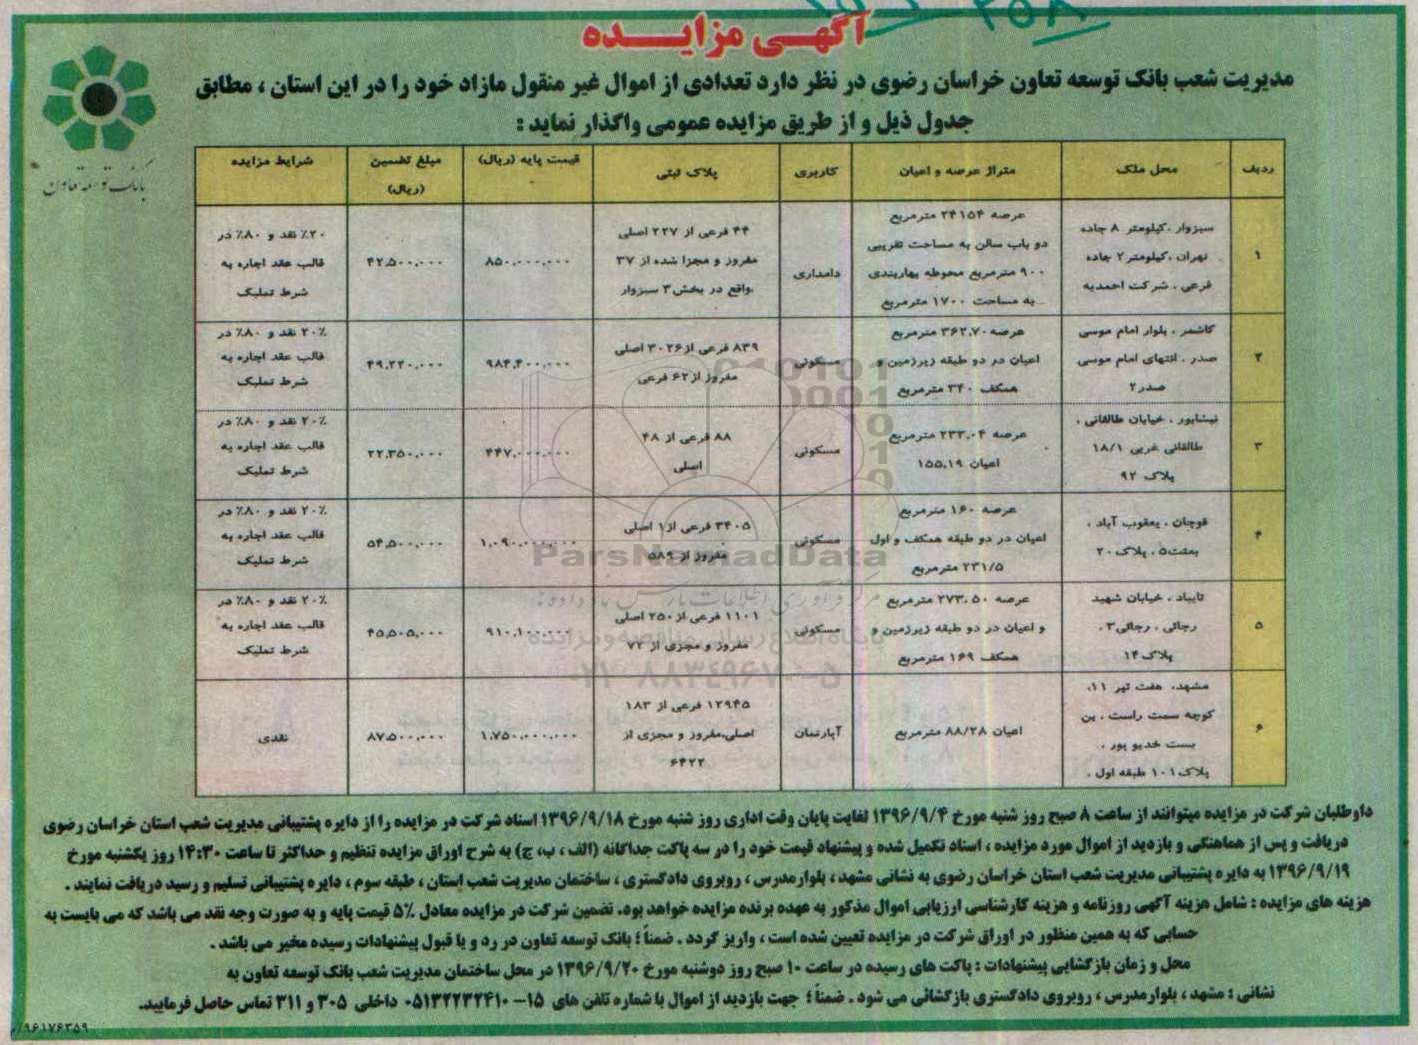 آگهی مزایده
مدیریت شعب بانک توسعه تعاون خراسان رضوی در نظر دارد تعدادی از اموال غیر منقول مازاد خود را در این استان ، مطابق
جدول ذیل و از طریق مزایده عمومی واگذار نماید :
بانک توسعه تعاون
ردیف	محل ملک	متراژ عرصه و اعیان	کاربری	پلاک ثبتی	قیمت پایه (ریال)	مبلغ تضمین (ریال)	شرایط مزایده
۱
سبزوار ،کیلومتر ۸ جاده
تهران ،کیلومتر۲ جاده
فرعی ، شرکت احمدیه
عرصه ۲۴۱۵۴ مترمربع
دو باب سالن به مساحت تقریبی
۹۰۰ مترمربع محوطه بهاربندی
به مساحت ۱۷۰۰ مترمربع
دامداری
۴۴ فرعی از ۲۲۷ اصلی
مفروز و مجزا شده از ۳۷
واقع در بخش۳ سبزوار
۸۵۰,۰۰۰,۰۰۰
۴۲,۵۰۰,۰۰۰
۲۰٪ نقد و ۸۰٪ در
قالب عقد اجاره به
شرط تملیک
۲
کاشمر ، بلوار امام موسی
صدر ، انتهای امام موسی
صدر۲
عرصه ۳۶۲,۷۰ مترمربع
اعیان در دو طبقه زیرزمین و
همکف ۳۴۰ مترمربع
مسکونی
۸۳۹ فرعی از۳۰۲۶ اصلی
مفروز از۶۲ فرعی
۹۸۴,۴۰۰,۰۰۰
۴۹,۲۲۰,۰۰۰
۲۰٪ نقد و ۸۰٪ در
قالب عقد اجاره به
شرط تملیک
۳
نیشابور ، خیابان طالقانی ،
طالقانی غربی ۱۸/۱
پلاک ۹۲
عرصه ۲۳۳,۰۴ مترمربع
اعیان ۱۵۵,۱۹
مسکونی
۸۸ فرعی از ۴۸
اصلی
۴۴۷,۰۰۰,۰۰۰
۲۲,۳۵۰,۰۰۰
۲۰٪ نقد و ۸۰٪ در
قالب عقد اجاره به
شرط تملیک
۴
قوچان ، یعقوب آباد ،
بعثت۵ ، پلاک۲۰
عرصه ۱۶۰ مترمربع
اعیان در دو طبقه همکف و اول
۲۳۱/۵ مترمربع
مسکونی
۳۴۰۵ فرعی از۱ اصلی
مفروز از ۵۸۹
۱,۰۹۰,۰۰۰,۰۰۰
۵۴,۵۰۰,۰۰۰
۲۰٪ نقد و ۸۰٪ در
قالب عقد اجاره به
شرط تملیک
۵
تایباد ، خیابان شهید
رجائی ، رجائی۳ ،
پلاک۱۴
عرصه ۲۷۳,۵۰ مترمربع
و اعیان در دو طبقه زیرزمین و
همکف ۱۶۹ مترمربع
مسکونی
۱۱۰۱ فرعی از۲۵۰ اصلی
مفروز و مجزی از ۷۲
۹۱۰,۱۰۰,۰۰۰
۴۵,۵۰۵,۰۰۰
۲۰٪ نقد و ۸۰٪ در
قالب عقد اجاره به
شرط تملیک
۶
مشهد، هفت تیر ۱۱،
کوچه سمت راست ، بن
بست خدیو پور ،
پلاک۱۰۱ طبقه اول ،
اعیان ۸۸/۲۸ مترمربع
آپارتمان
۱۲۹۴۵ فرعی از ۱۸۳
اصلی،مفروز و مجزی از
۶۴۲۲
۱,۷۵۰,۰۰۰,۰۰۰
۸۷,۵۰۰,۰۰۰
نقدی
ParsNamadData
مرکز فرآوری اطلاعات پارس نماد داده ها
پایگاه اطلاع رسانی مناقصه و مزایده
۰۲۱-۸۸۳۴۹۶۷۰-۵
داوطلبان شرکت در مزایده میتوانند از ساعت ۸ صبح روز شنبه مورخ ۱۳۹۶/۹/۴ لغایت پایان وقت اداری روز شنبه مورخ ۱۳۹۶/۹/۱۸ اسناد شرکت در مزایده را از دایره پشتیبانی مدیریت شعب استان خراسان رضوی
دریافت و پس از هماهنگی و بازدید از اموال مورد مزایده ، اسناد تکمیل شده و پیشنهاد قیمت خود را در سه پاکت جداگانه (الف ، ب، ج) به شرح اوراق مزایده تنظیم و حداکثر تا ساعت ۱۴:۳۰ روز یکشنبه مورخ
۱۳۹۶/۹/۱۹ به دایره پشتیبانی مدیریت شعب استان خراسان رضوی به نشانی مشهد ، بلوارمدرس ، روبروی دادگستری ، ساختمان مدیریت شعب استان ، طبقه سوم ، دایره پشتیبانی تسلیم و رسید دریافت نمایند .
هزینه های مزایده : شامل هزینه آگهی روزنامه و هزینه کارشناسی ارزیابی اموال مذکور به عهده برنده مزایده خواهد بود. تضمین شرکت در مزایده معادل ۵٪ قیمت پایه و به صورت وجه نقد می باشد که می بایست به
حسابی که به همین منظور در اوراق شرکت در مزایده تعیین شده است ، واریز گردد . ضمناً ؛ بانک توسعه تعاون در رد و یا قبول پیشنهادات رسیده مخیر می باشد .
محل و زمان بازگشایی پیشنهادات : پاکت های رسیده در ساعت ۱۰ صبح روز دوشنبه مورخ ۱۳۹۶/۹/۲۰ در محل ساختمان مدیریت شعب بانک توسعه تعاون به
نشانی : مشهد ، بلوارمدرس ، روبروی دادگستری بازگشائی می شود . ضمناً ؛ جهت بازدید از اموال با شماره تلفن های ۱۵-۰۵۱۳۲۲۳۲۴۱۰ داخلی ۳۰۵ و ۳۱۱ تماس حاصل فرمایید.
۹۶۱۷۶۳۵۹/م